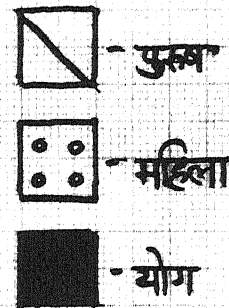 - पुरुष
- महिला
- योग